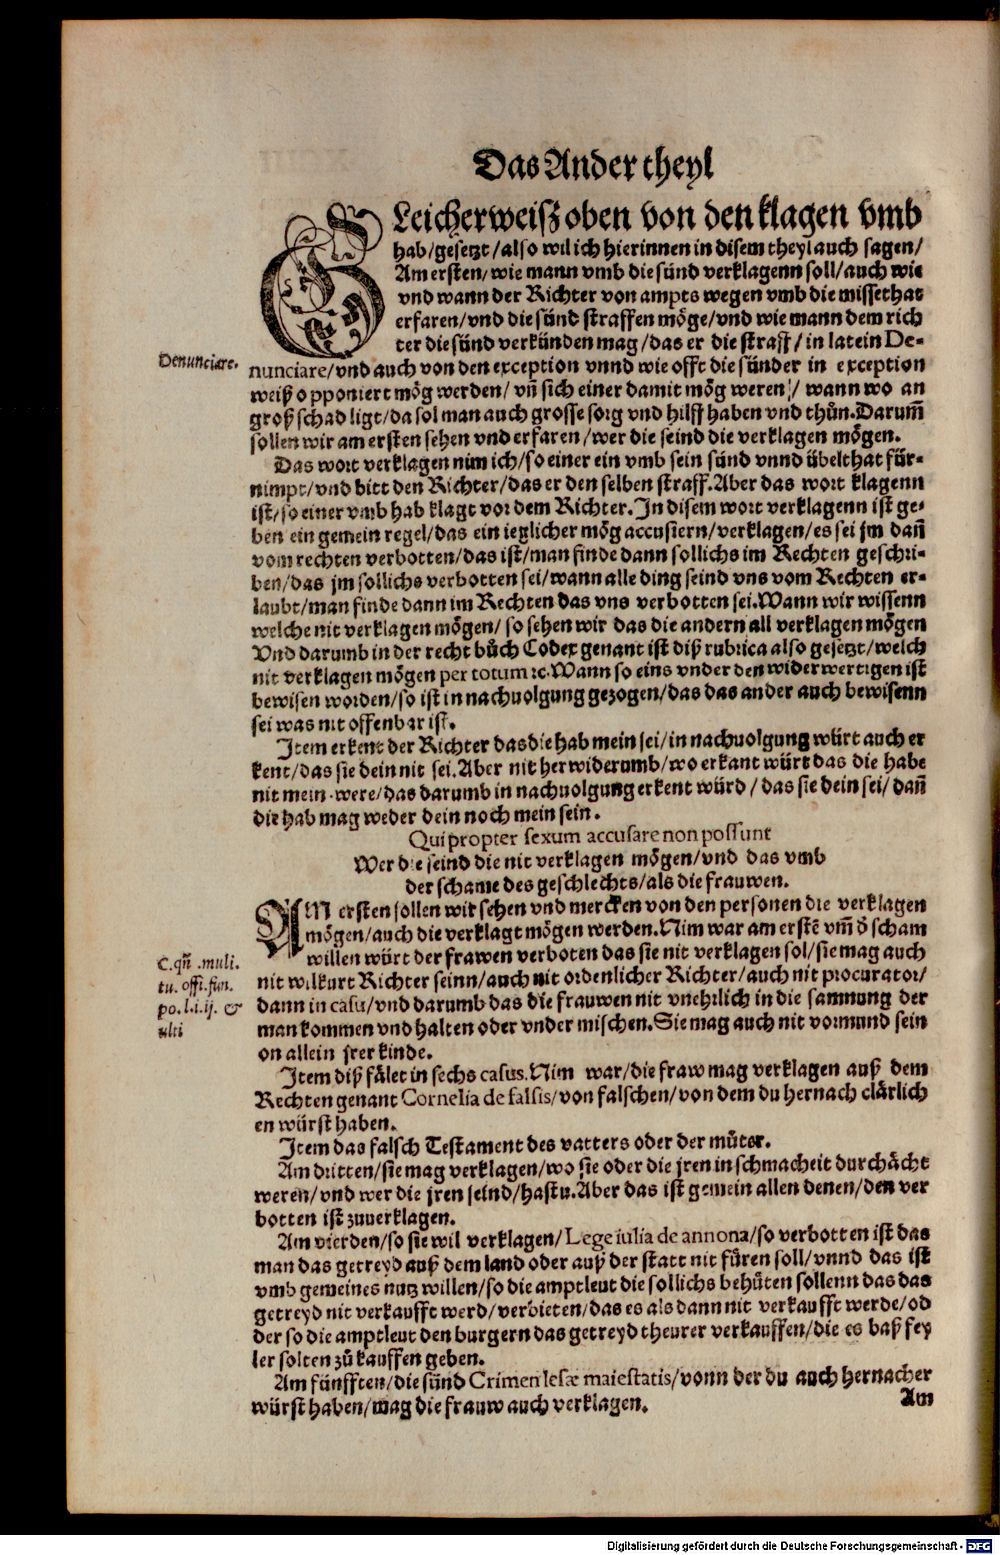 Das Ander theyl
GLeicherweiß oben von den klagen vmb
hab/gesetzt/also wil ich hierinnen in disem theyl auch sagen/
Am ersten/wie mann vmb die sünd verklagenn soll/auch wie
vnd wann der Richter von ampts wegen vmb die missethat
erfaren/vnd die sünd straffen möge/vnd wie mann dem rich
ter die sünd verkünden mag/das er die straff/in latein De-
Denunciare.
nunciare/vnd auch von den exception vnnd wie offt die sünder in exception
weiß opponiert mög werden/vñ sich einer damit mög weren/wann wo an
groß schad ligt/da sol man auch grosse sorg vnd hilff haben vnd thůn. Darum̃
sollen wir am ersten sehen vnd erfaren/wer die seind die verklagen mögen.
Das wort verklagen nim ich/so einer ein vmb sein sünd vnnd übelthat für-
nimpt/vnd bitt den Richter/das er den selben straff. Aber das wort klagenn
ist/so einer vmb hab klagt vor dem Richter. In disem wort verklagenn ist ge-
ben ein gemein regel/das ein ieglicher mög accusiern/verklagen/es sei jm dañ
vom rechten verbotten/das ist/man finde dann sollichs im Rechten geschri-
ben/das jm sollichs verbotten sei/wann alle ding seind vns vom Rechten er-
laubt/man finde dann im Rechten das vns verbotten sei. Wann wir wissenn
welche nit verklagen mögen/so sehen wir das die andern all verklagen mögen
Vnd darumb in der recht bůch Codex genant ist diß rubrica also gesetzt/welch
nit verklagen mögen per totum ꝛc. Wann so eins vnder den widerwertigen ist
bewisen worden/so ist in nachuolgung gezogen/das das ander auch bewisenn
sei was nit offenbar ist.
Item erkent der Richter das die hab mein sei/in nachuolgung würt auch er
kent/das sie dein nit sei. Aber nit herwiderumb/wo erkant würt das die habe
nit mein were/das darumb in nachuolgung erkent würd/das sie dein sei/dañ
die hab mag weder dein noch mein sein.
Qui propter sexum accusare non possunt
Wer die seind die nit verklagen mögen/vnd das vmb
der schame des geschlechts/als die frauwen.
AM ersten sollen wir sehen vnd mercken von den personen die verklagen
mögen/auch die verklagt mögen werden. Nim war am erstẽ vm̃ ð scham
willen würt der frawen verboten das sie nit verklagen sol/sie mag auch
C. qñ .muli.
tu. offi. fun.
po. l. i. ij. &
ulti
nit wilkurt Richter seinn/auch nit ordenlicher Richter/auch nit procurator/
dann in casu/vnd darumb das die frauwen nit vnehrlich in die samnung der
man kommen vnd halten oder vnder mischen. Sie mag auch nit vormund sein
on allein jrer kinde.
Item diß fälet in sechs casus. Nim war/die fraw mag verklagen auß dem
Rechten genant Cornelia de falsis/von falschen/von dem du hernach clärlich
en würst haben.
Item das falsch Testament des vatters oder der můter.
Am dritten/sie mag verklagen/wo sie oder die jren in schmacheit durchächt
weren/vnd wer die jren seind/hastu. Aber das ist gemein allen denen/den ver
botten ist zuuerklagen.
Am vierden/so sie wil verklagen/Lege iulia de annona/so verbotten ist das
man das getreyd auß dem land oder auß der statt nit füren soll/vnnd das ist
vmb gemeines nutz willen/so die amptleut die sollichs behüten sollenn das das
getreyd nit verkaufft werd/verbieten/das es als dann nit verkaufft werde/od
der so die amptleut den burgern das getreyd theurer verkauffen/die es baß fey
ler solten zů kauffen geben.
Am fünfften/die sünd Crimen lesæ maiestatis/vonn der du auch hernacher
würst haben/mag die frauw auch verklagen.
Am
Digitalisierung gefördert durch die Deutsche Forschungsgemeinschaft - DFG